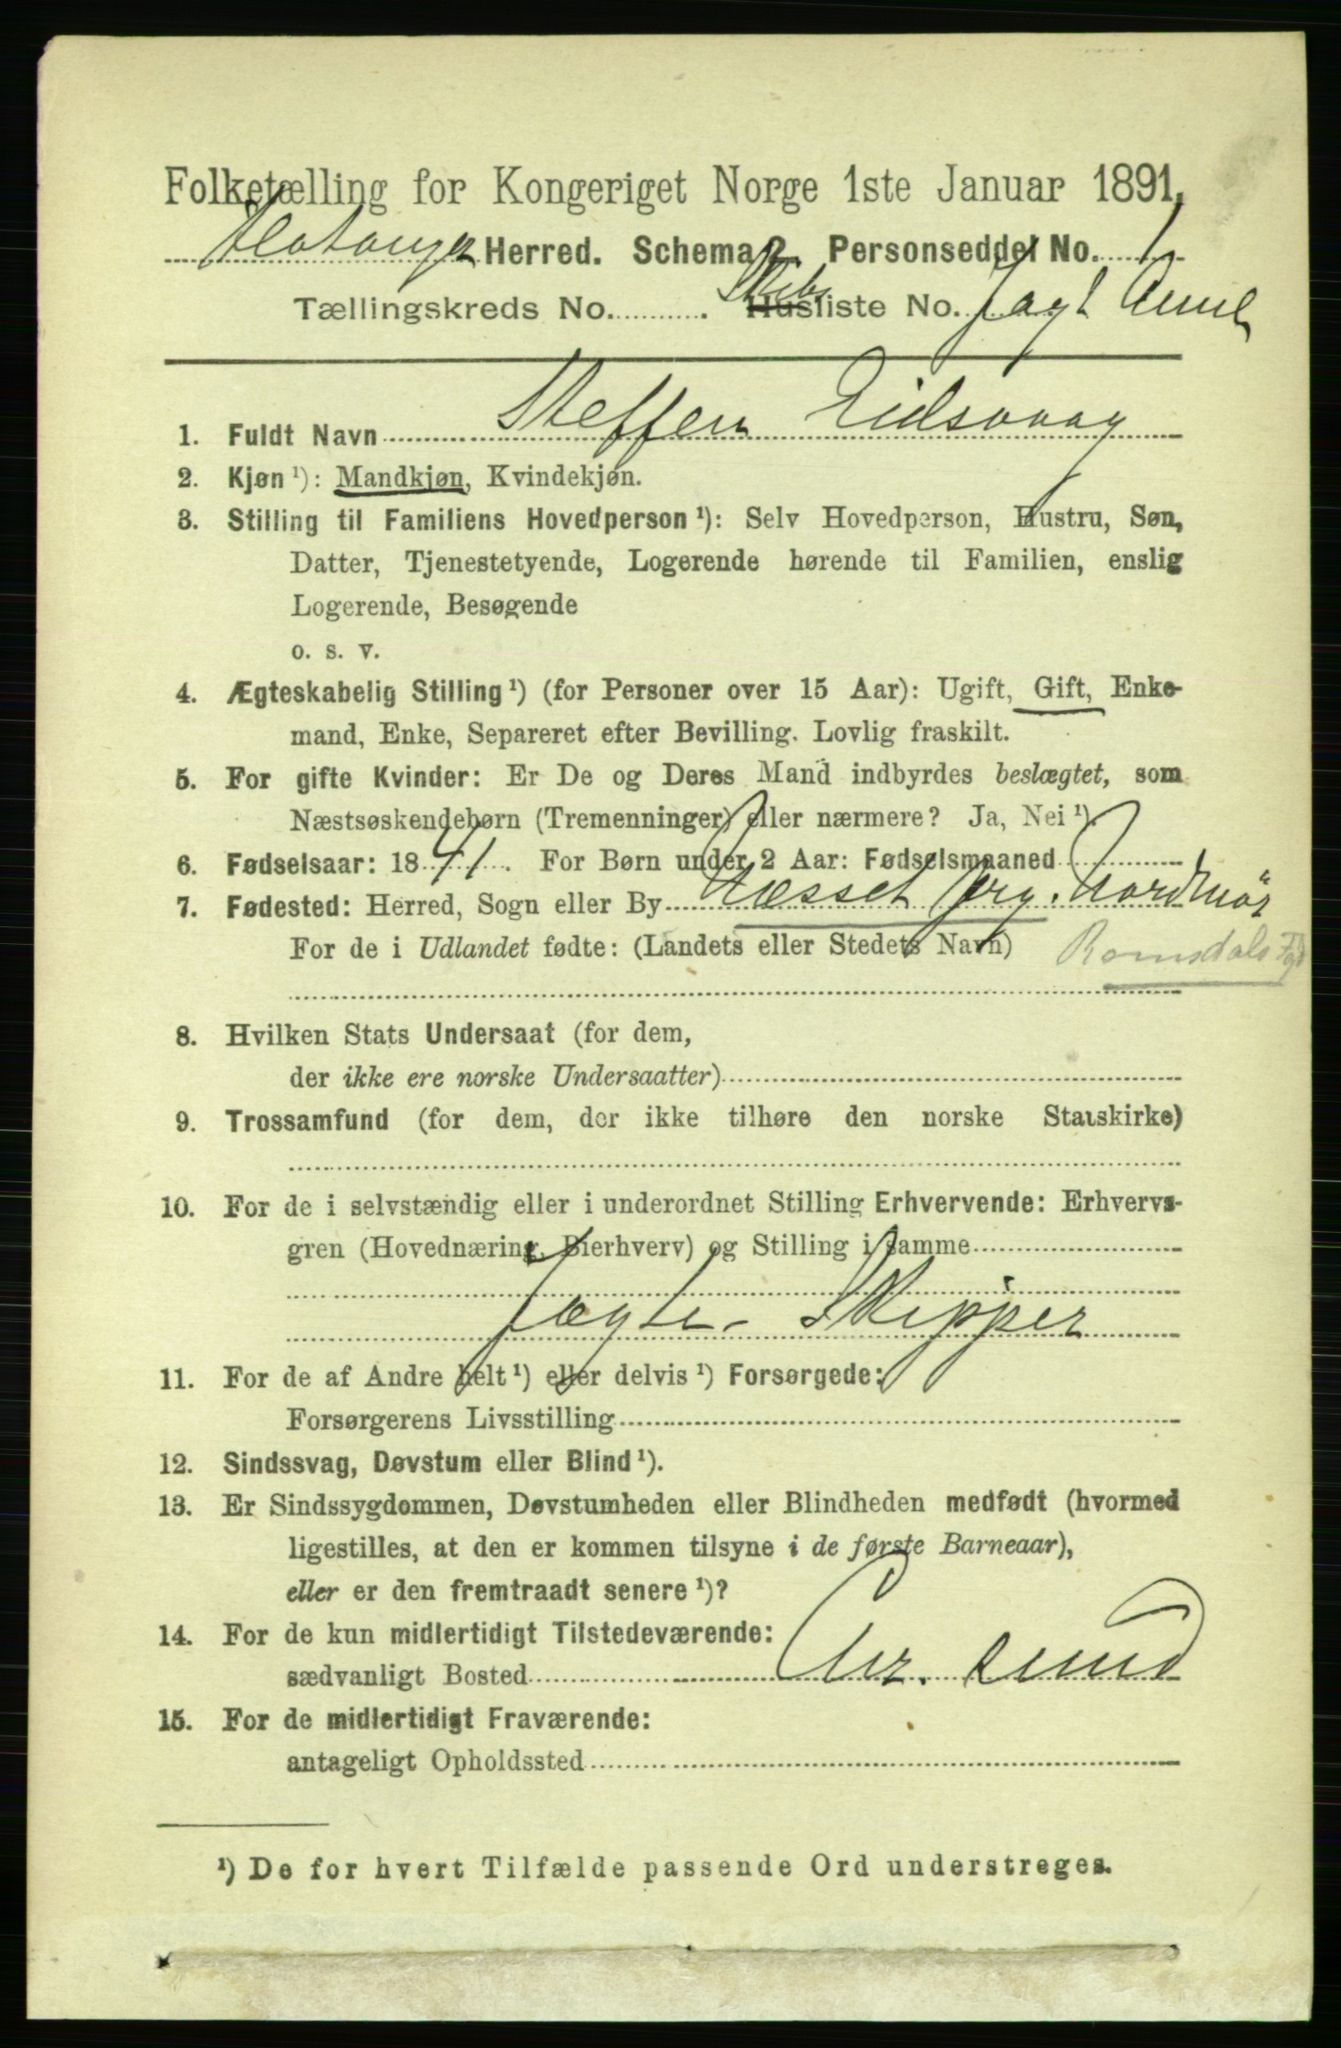 Folketælling for Kongeriget Norge 1ste Januar 1891.
Flatanger Herred. Schema 2. Personseddel No. 1
Tællingskreds No. Skibs Husliste No. Jagt Anne
1. Fuldt Navn Steffen Eidsvaag
2. Kjøn ¹): Mandkjøn, Kvindekjøn.
3. Stilling til Familiens Hovedperson ¹): Selv Hovedperson, Hustru, Søn,
Datter, Tjenestetyende, Logerende hørende til Familien, enslig
Logerende, Besøgende
o. s. v.
4. Ægteskabelig Stilling ¹) (for Personer over 15 Aar): Ugift, Gift, Enke-
mand, Enke, Separeret efter Bevilling. Lovlig fraskilt.
5. For gifte Kvinder: Er De og Deres Mand indbyrdes beslægtet, som
Næstsøskendebørn (Tremenninger) eller nærmere? Ja, Nei ¹).
6. Fødselsaar: 1841. For Børn under 2 Aar: Fødselsmaaned
7. Fødested: Herred, Sogn eller By Næsset Prg. Nordmör
For de i Udlandet fødte: (Landets eller Stedets Navn) Romsdals Fgd
8. Hvilken Stats Undersaat (for dem,
der ikke ere norske Undersaatter)
9. Trossamfund (for dem, der ikke tilhøre den norske Statskirke)
10. For de i selvstændig eller i underordnet Stilling Erhvervende: Erhvervs-
gren (Hovednæring, Bierhverv) og Stilling i samme
Jagte-Skipper
11. For de af Andre helt ¹) eller delvis ¹) Forsørgede:
Forsørgerens Livsstilling
12. Sindssvag, Døvstum eller Blind ¹).
13. Er Sindssygdommen, Døvstumheden eller Blindheden medfødt (hvormed
ligestilles, at den er kommen tilsyne i de første Barneaar),
eller er den fremtraadt senere ¹)?
14. For de kun midlertidigt Tilstedeværende:
sædvanligt Bosted Chr. sund
15. For de midlertidigt Fraværende:
antageligt Opholdssted
¹) De for hvert Tilfælde passende Ord understreges.